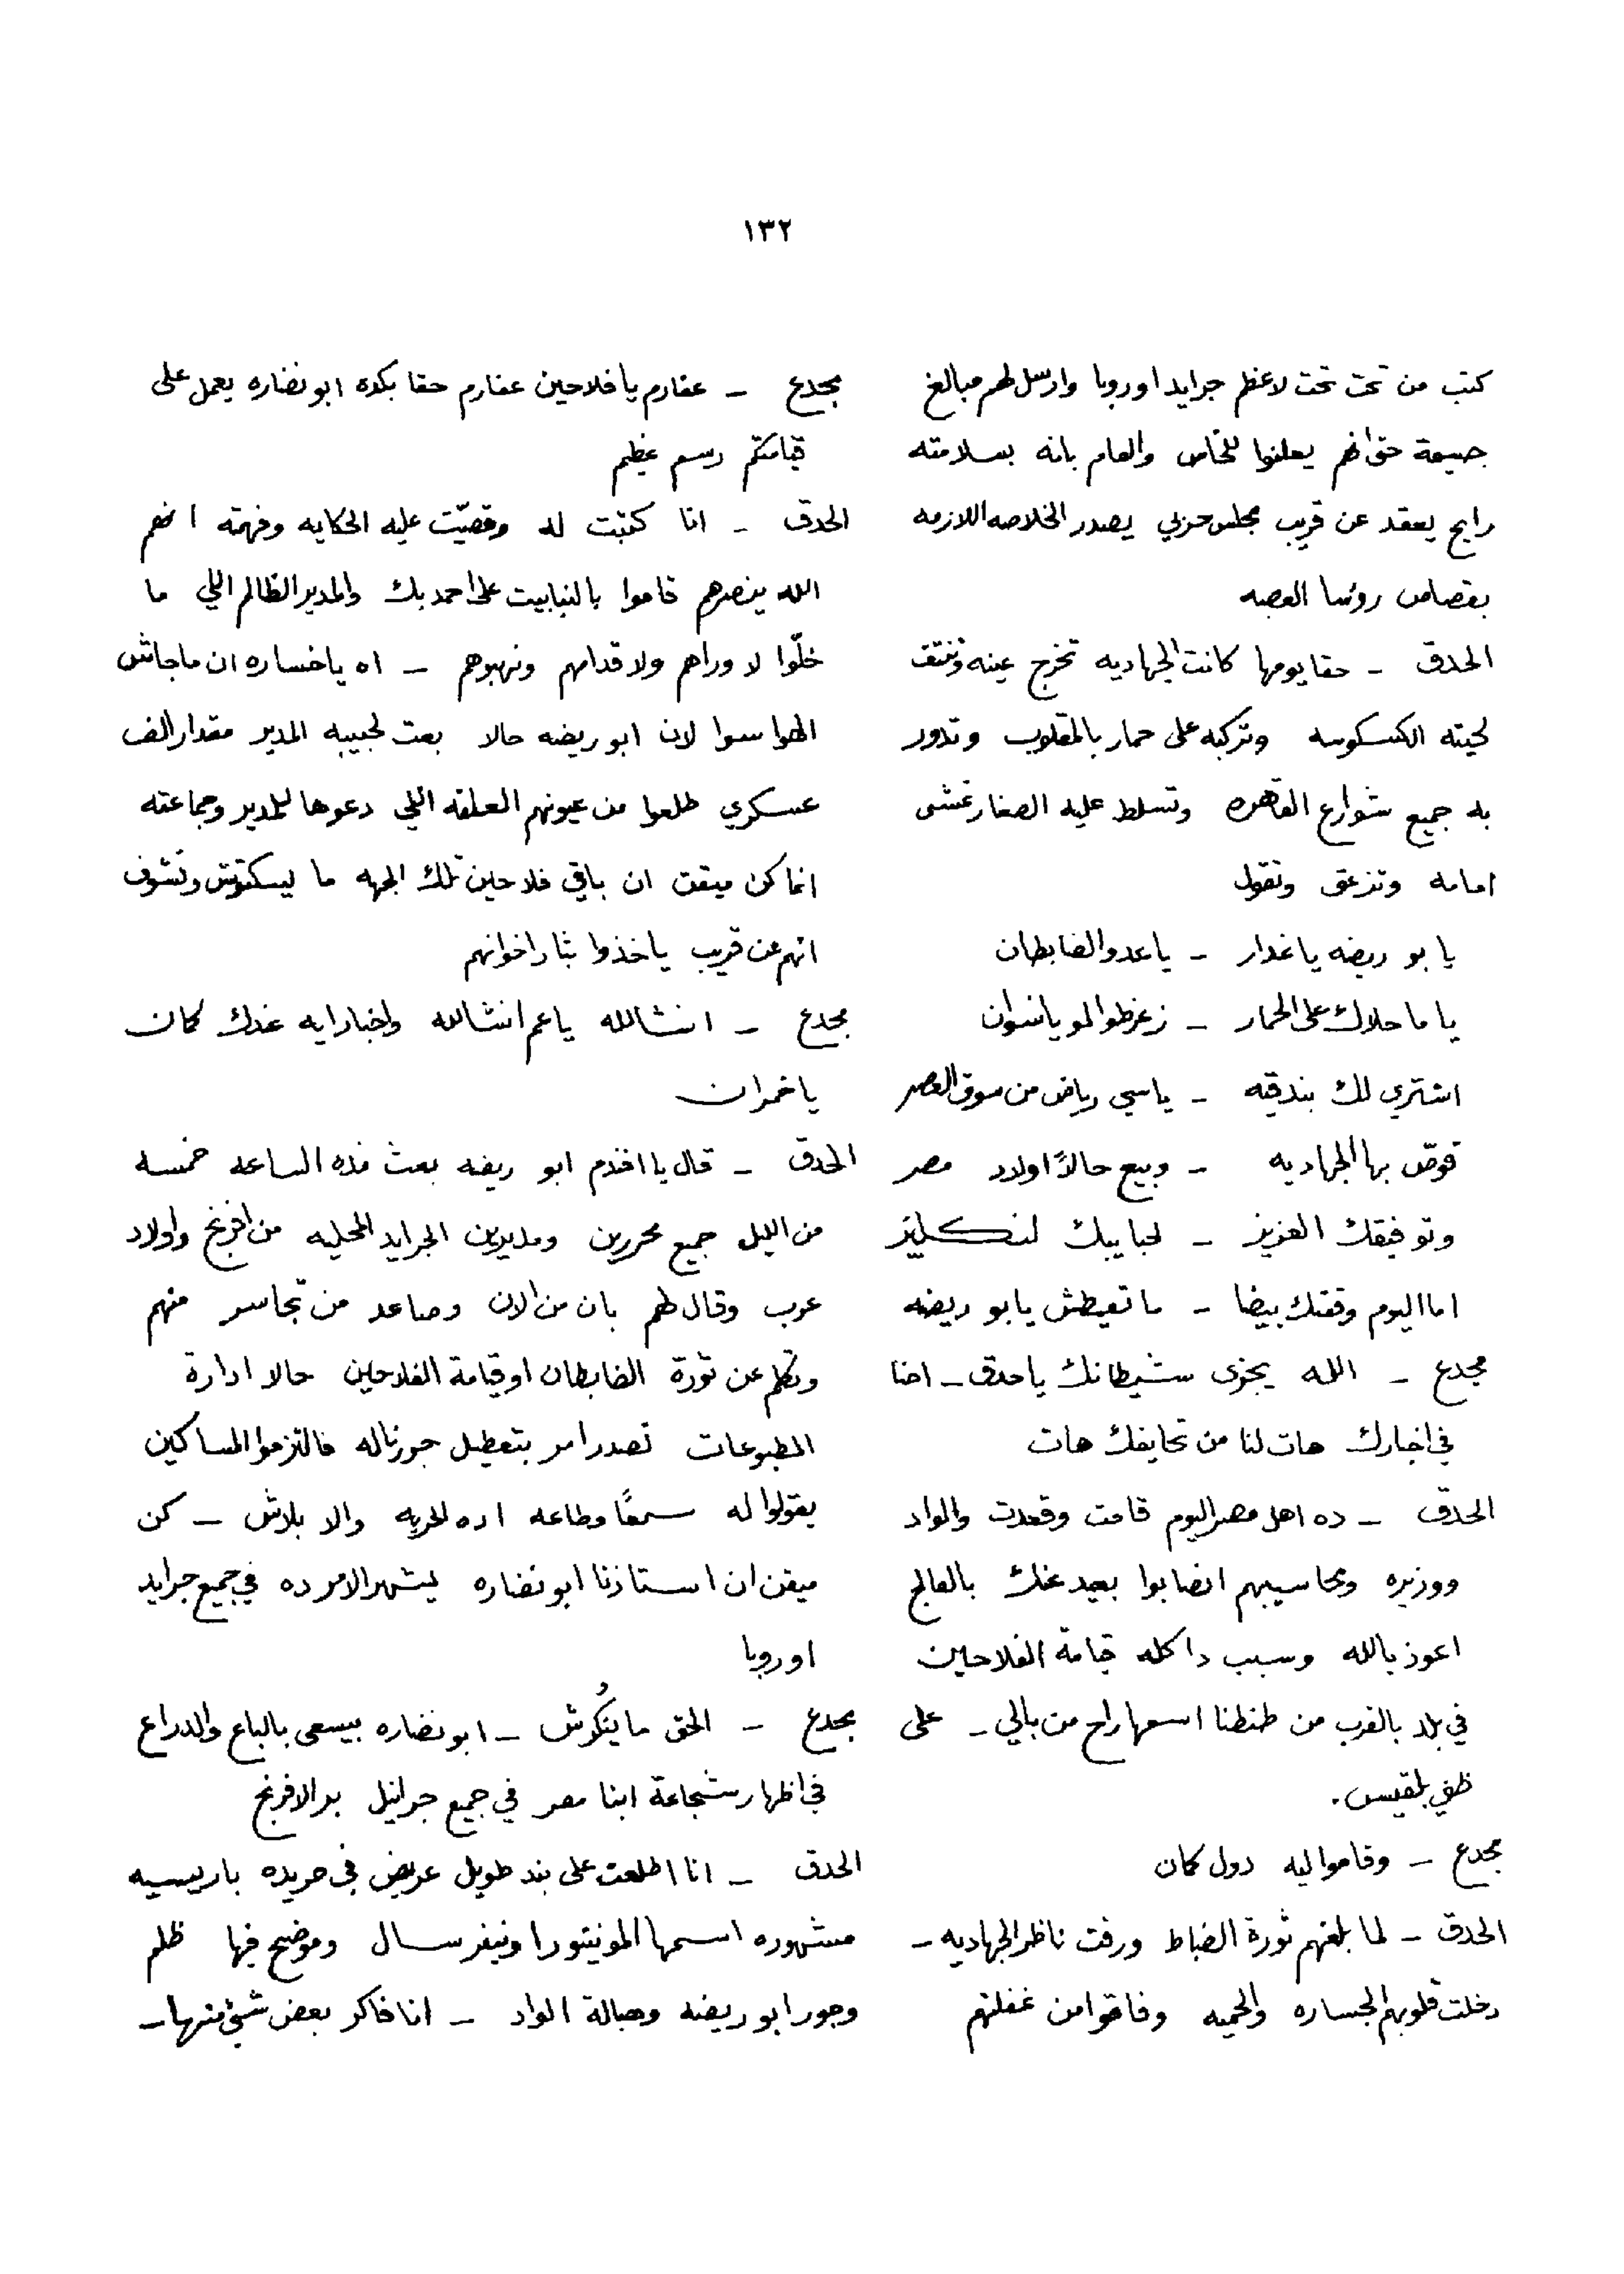 ١٣٢
كتب من تحت تحت لاعظم جرايد اوروبا وارسل لهم مبالغ
جسيمة حق انهم يعلنوا للخاص والعام بانه بسلامته
رايح يعقد عن قريب مجلس حربي يصدر الخلاصه اللازمه
بقصاص روسا العصبه
الحدق – حقا يومها كانت الجهاديه تخرج عينه وتنتف
لحيته الكسكوسه وتركبه على حمار بالمقلوب وتدور
به جميع شوارع القاهره وتسلط عليه الصغار تمشى
امامه وتزعق وتقول
يا بو ريضه يا غدار – يا عدو الضابطان
يا ما حلاك على الحمار – زغرطوا لمو يا نسوان
اشتري لك بندقيه – يا سي رياض من سوق العصر
قوص بها الجهاديه – وبيع حالاً اولاد مصر
وتوفيقك العزيز – لحبايبك لنكليز
اما اليوم وقفتك بيضا – ما تعيطش يا بو ريضه
مجدع – الله يجزى شيطانك يا حدق – احنا
في اخبارك هات لنا من تحايفك هات
الحدق – ده اهل مصر اليوم قامت وقعدت والواد
ووزيره ومحاسيبهم انضابوا بعيد عنك بالفالج
اعوذ بالله وسبب دا كله قيامة الفلاحين
في بلد بالقرب من طنطنا اسمها راح من بالي – على
ظني بلقيس.
مجدع – وقاموا ليه دول كمان
الحدق – لما بلغهم ثورة الضباط ورفت ناظر الجهاديه –
دخلت قلوبهم الجساره والحميه وفاقوا من غفلتهم
مجدع – عفارم يا فلاحين عفارم حقا بكده ابو نضاره يعمل على
قيامتكم رسم عظيم
الحدق – انا كتبت له وقصيّت عليه الحكايه وفهمته انهم
الله ينصرهم قاموا بالنبابيت على احمد بك والمدير الظالم اللي ما
خلّوا لا وراهم ولا قدامهم ونهبوهم – اه يا خساره ان ما جاش
الهواسوا لان ابو ريضه حالا بعت لحبيبه المدير مقدار الف
عسكري طلعوا من عيونهم العلقه اللي دعوها للمدير وجماعته
انما كن ميقن ان باقي فلاحين تلك الجهه ما ليسكتوش ونشوف
انهم عن قريب ياخذوا بثار اخوانهم
مجدع – انشالله يا عم انشالله واخبار ايه عندك كمان
يا خمران
الحدق – قال يا افندم ابو ريضه بعث هذه الساعه خمسه
من الليل جميع محررين ومديرين الجرايد المحليه من افرنج واولاد
عرب وقال لهم بان من الان وصاعد من تجاسر منهم
وتكلم عن ثورة الضابطان او قيامة الفلاحين حالا ادارة
المطبوعات تصدر امر بتعطيل جورناله فالتزموا المساكين
يقولوا له سمعًا وطاعه اده الحريه والا بلاش – كن
ميقن ان استاذنا ابو نضاره ليشهر الامر ده في جميع جرايد
اوروبا
مجدع – الحق ما ينُكرش – ابو نضاره بيسعى بالباع والدراع
في اظهار شجاعة ابنا مصر في جميع جرانيل بر الافرنج
الحدق – انا اطلعت على بند طويل عريض في جريده باريسيه
مشهوره اسمها المونيتور اونيفرسال وموضح فيها ظلم
وجور ابو ريضه وهبالة الواد – انا فاكر بعض شيء منها –